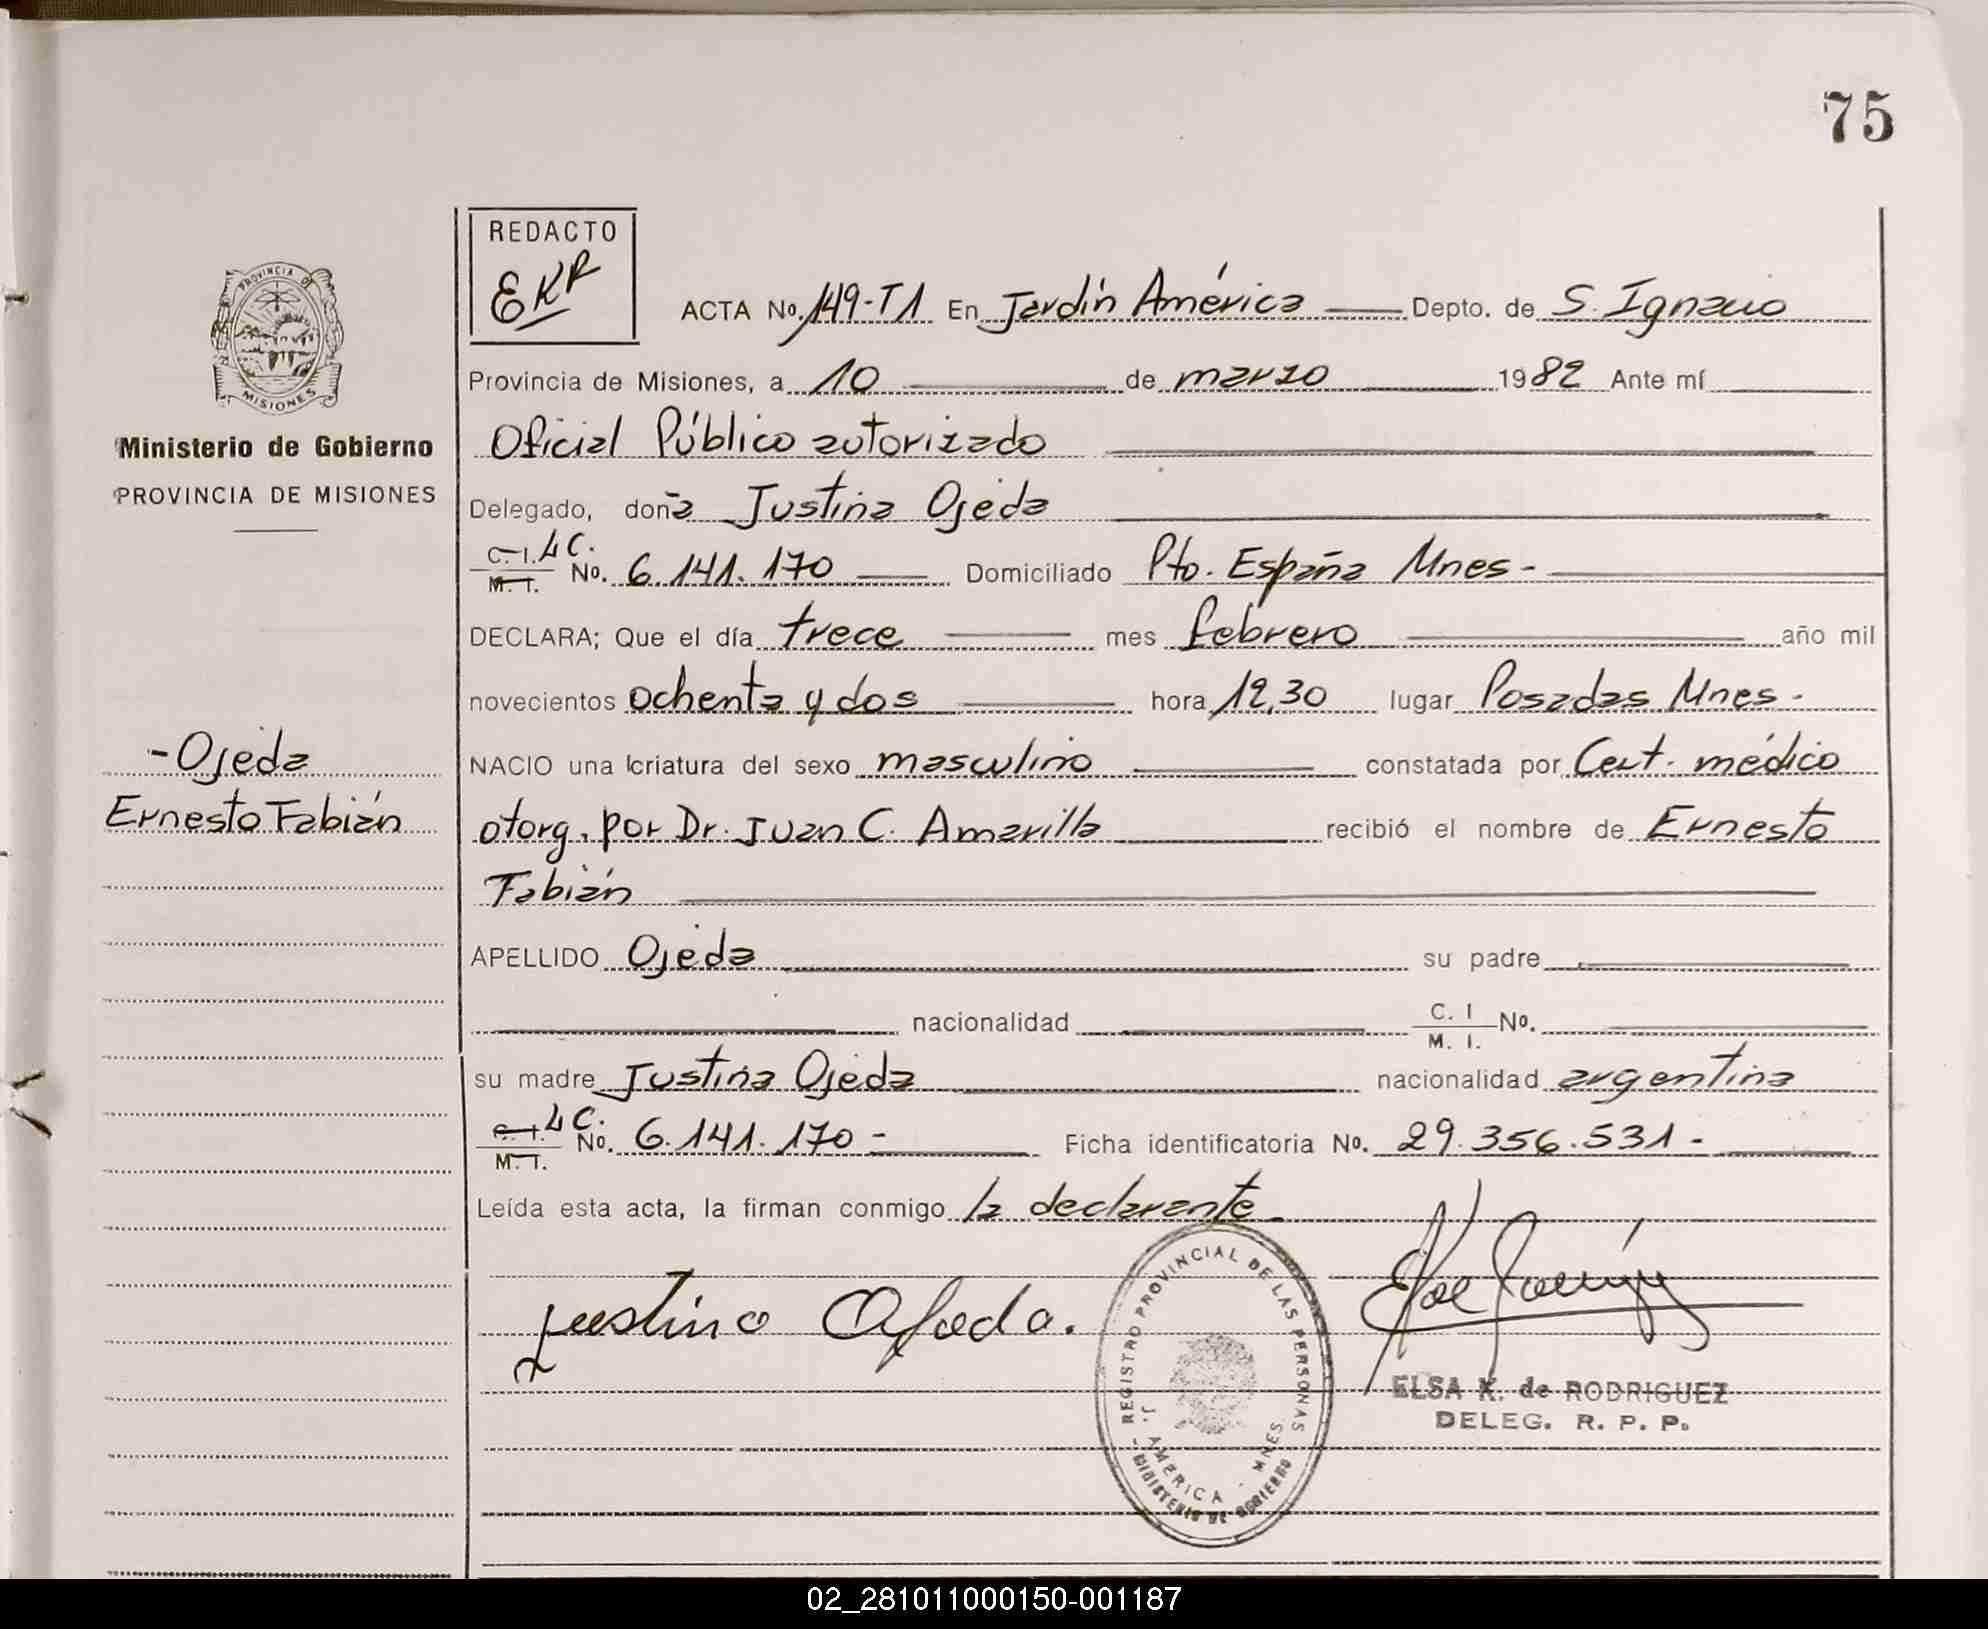 75
REDACTO
EKR
PROVINCIA DE
MISIONES
ACTA No. 149-T1 En Jardín América Depto. de S. Ignacio
Provincia de Misiones, a 10 de marzo 1982 Ante mí
Ministerio de Gobierno
PROVINCIA DE MISIONES
Oficial Público autorizado
Delegado, doña Justina Ojeda
C. I. LC.
M. I. No. 6.141.170 Domiciliado Pto. España Mnes-
DECLARA; Que el día trece mes febrero año mil
novecientos ochenta y dos hora 12,30 lugar Posadas Mnes-
-Ojeda
Ernesto Fabián
NACIO una criatura del sexo masculino constatada por Cert. médico
otorg. por Dr. Juan C. Amarilla recibió el nombre de Ernesto
Fabián
APELLIDO Ojeda su padre
nacionalidad C. I M. I. No.
su madre Justina Ojeda nacionalidad argentina
C. I. LC.
M. I. No. 6.141.170- Ficha identificatoria No. 29.356.531-
Leída esta acta, la firman conmigo la declarante
Justina Ojeda.
REGISTRO PROVINCIAL DE LAS PERSONAS
J. AMERICA - MNES
- MINISTERIO DE GOBIERNO
ELSA K. de RODRIGUEZ
DELEG. R. P. P.
02_281011000150-001187